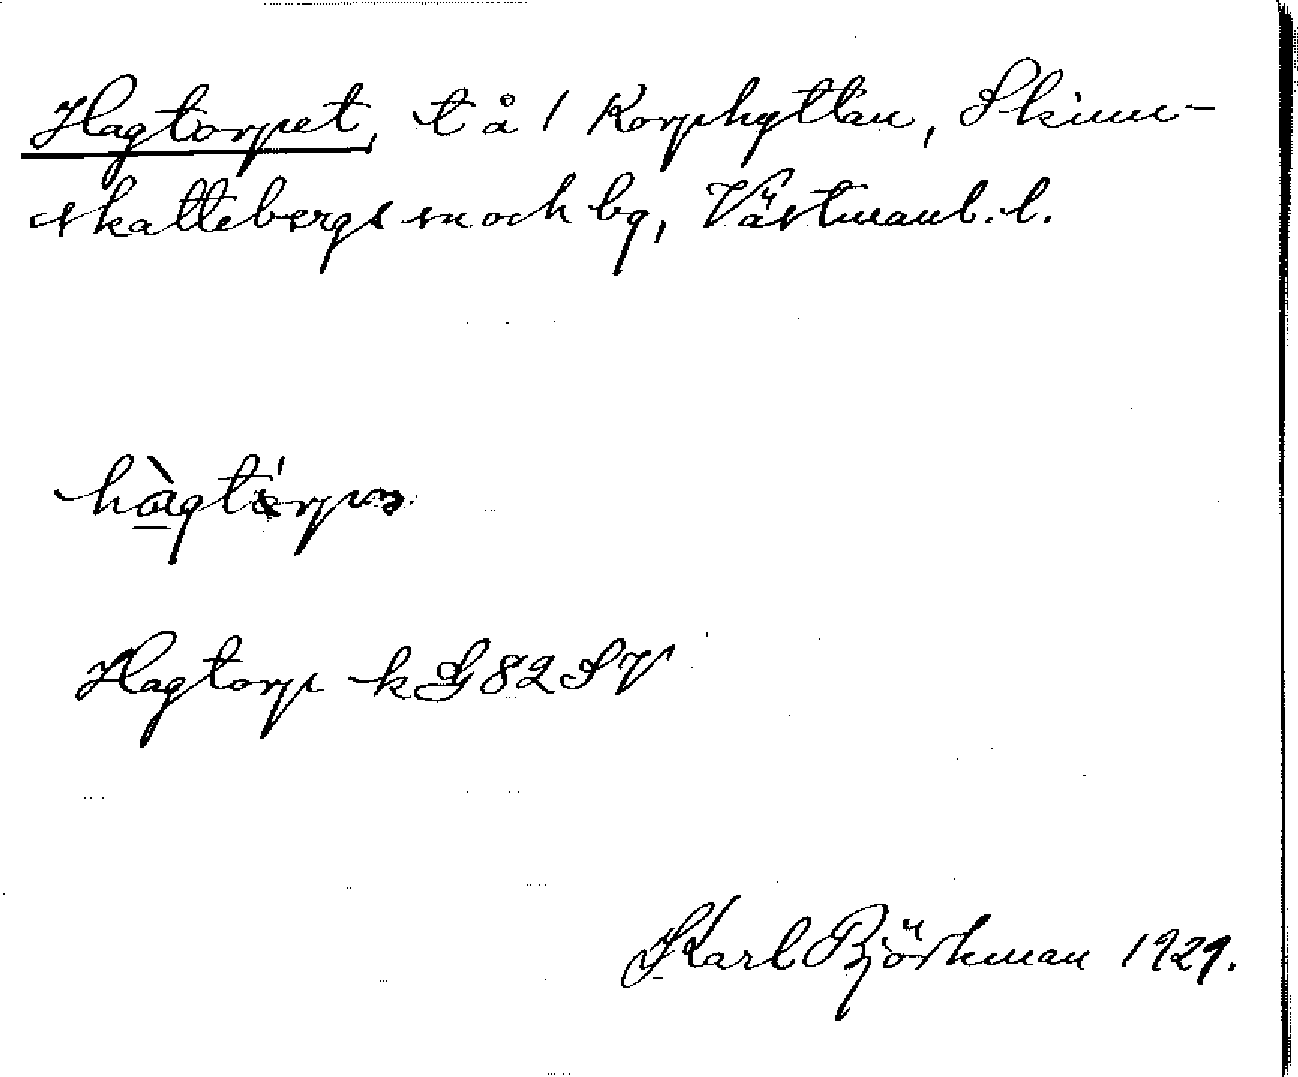 Hagtorpet, t å 1 Korphyttan, Skinn-
skattebergs sn och bg, Västmanl. l.
hàgtórpə
Hagtorp k G 82 SV
Karl Björkman 1929.